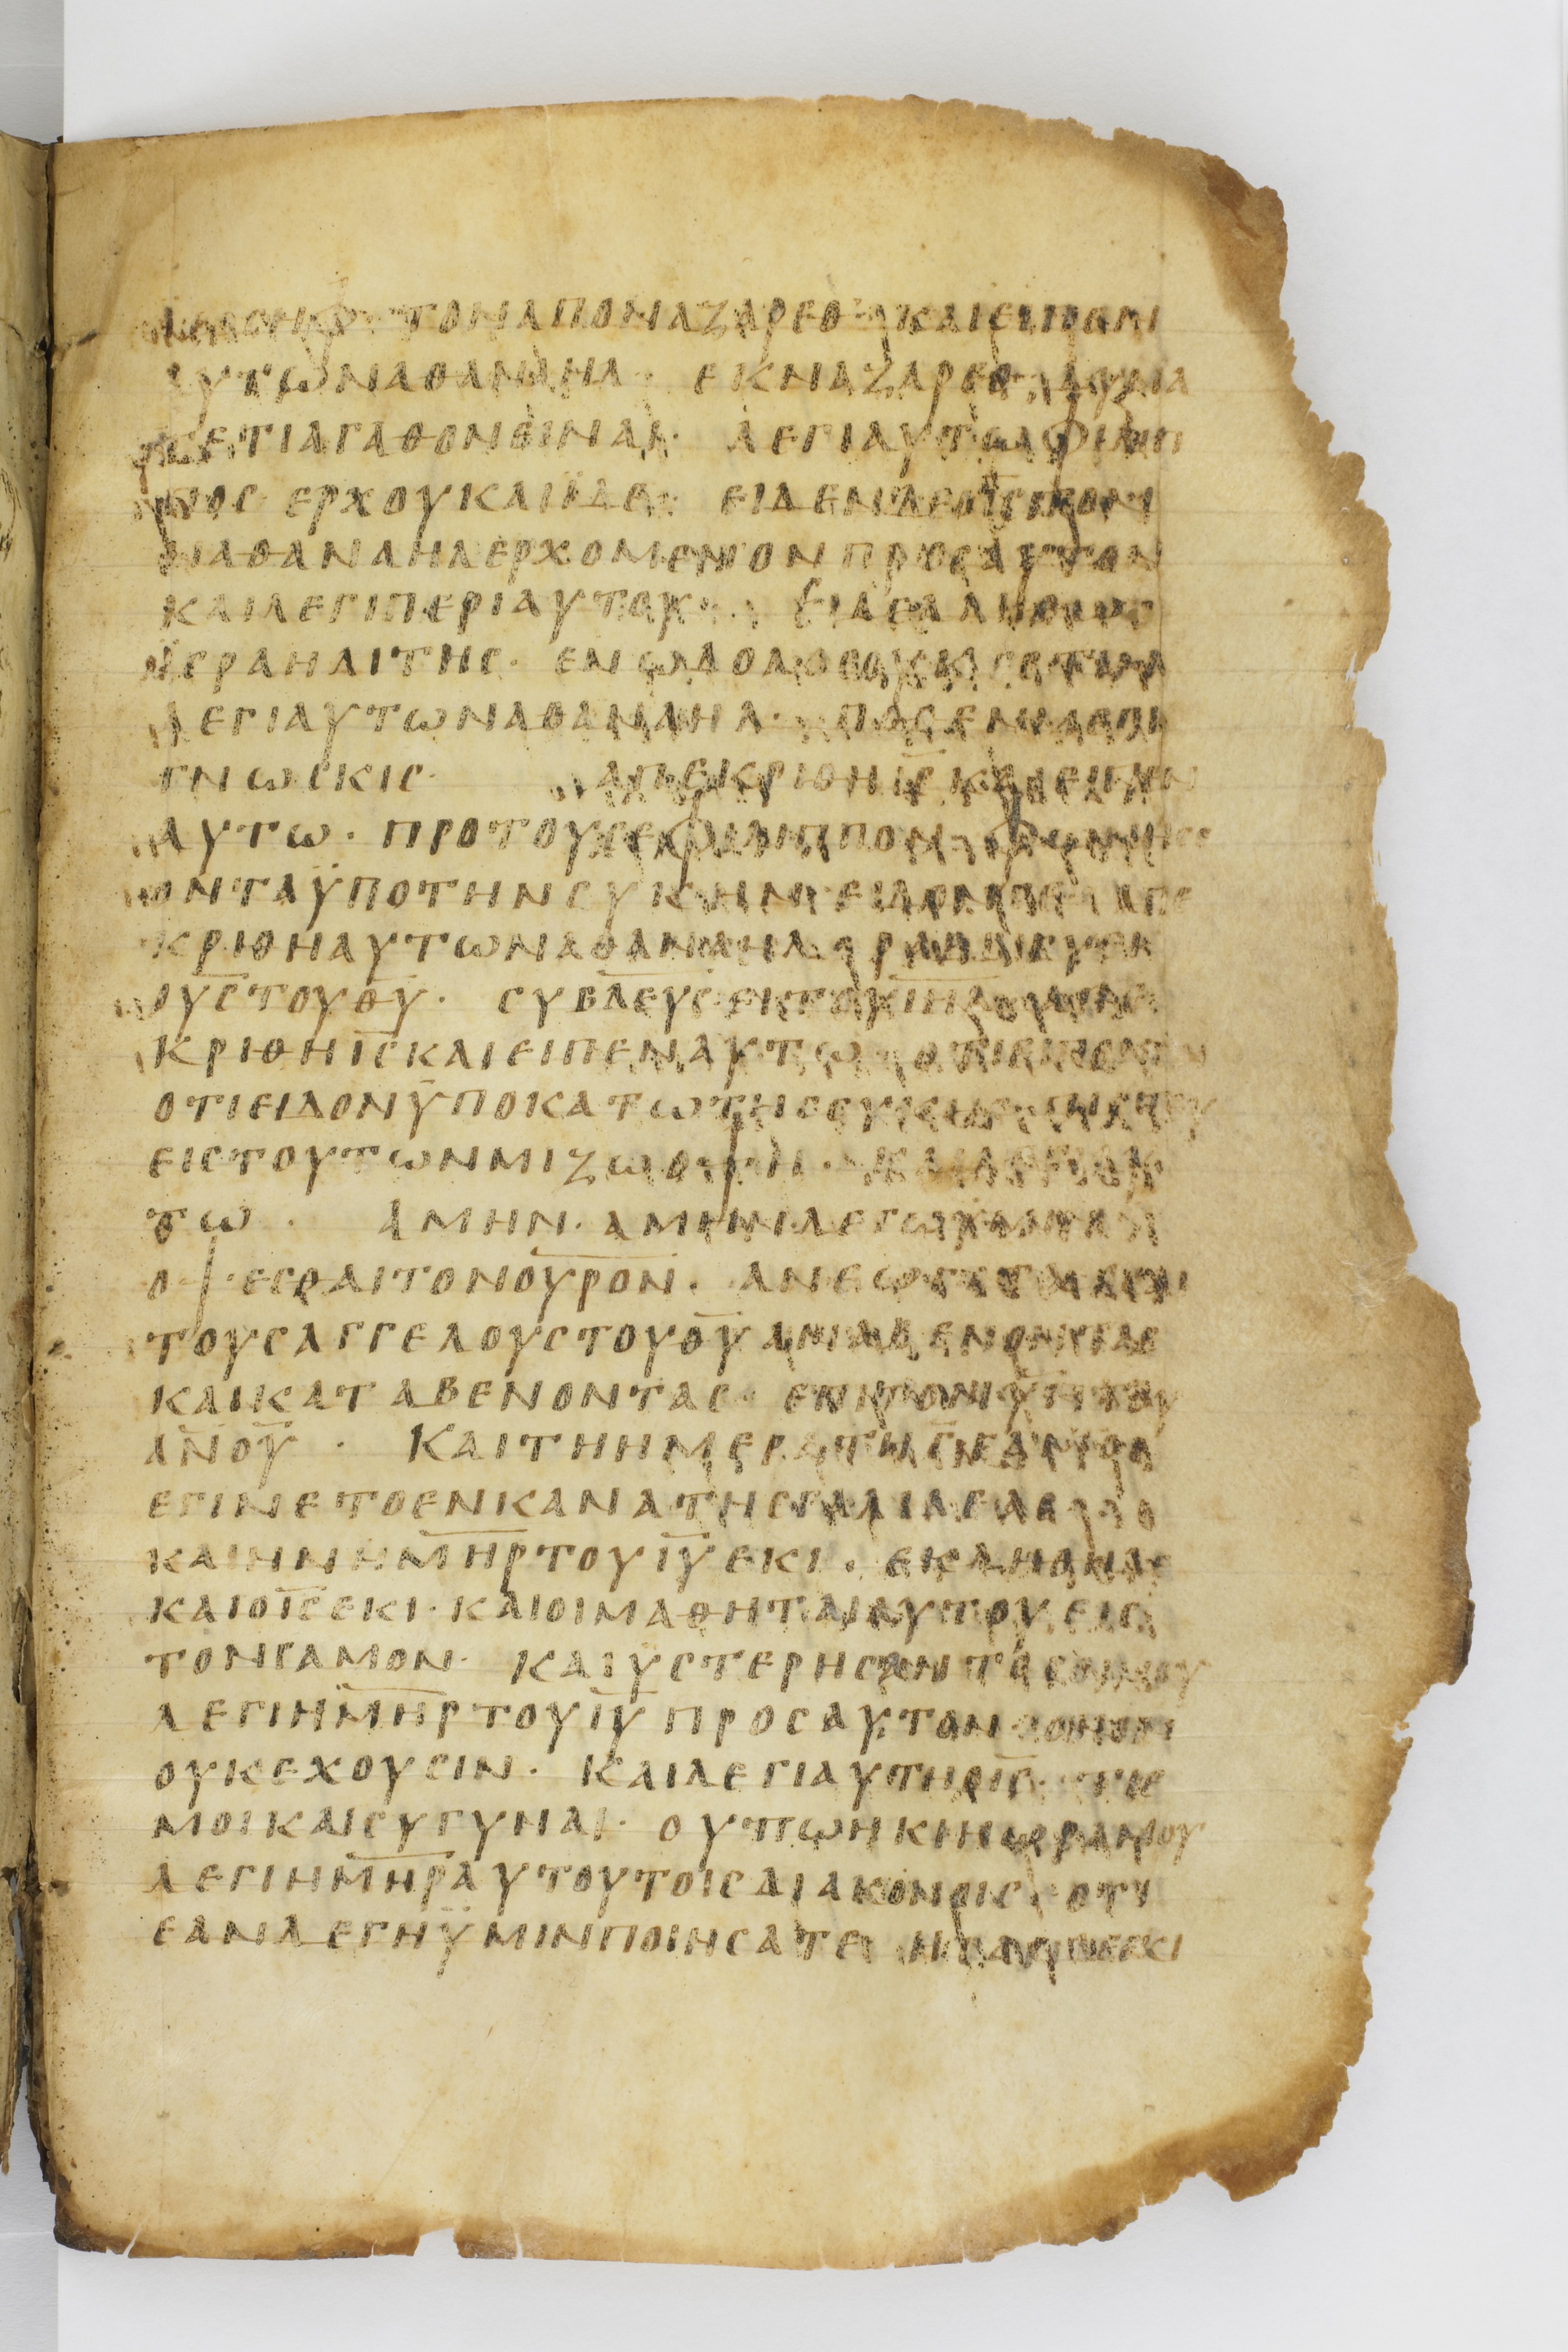 ΤΟΝΑΠΟΝΑΖΑΡΕΘ· ΚΑΙΕΙΠΕΝ
ΑΥΤΩΝΑΘΑΝΑΗΛ· ΕΚΝΑΖΑΡΕΘ
ΤΕΤΙΑΓΑΘΟΝΕΙΝΑΙ· ΛΕΓΙΑΥΤΩΦΙΛΙΠ
ΠΟС ΕΡΧΟΥΚΑΙΪΔΕ: ΕΙΔΕΝ
ΝΑΘΑΝΑΗΛΕΡΧΟΜΕΝΟΝΠΡΟСΑΥΤΟΝ
ΚΑΙΛΕΓΙΠΕΡΙΑΥΤΟΥ· ΕΙΔΕΑΛΗΘΩС
ΪСΡΑΗΛΙΤΗС· ΕΝΩΔΟΛΟСΟΥΚΕСΤΙΝ
ΛΕΓΙΑΥΤΩΝΑΘΑΝΑΗΛ· ΠΟΘΕΝΜΕ
ΓΝΩСΚΙС· ΑΠΕΚΡΙΘΗΙ̅С̅ΚΑΙΕΙΠΕΝ
ΑΥΤΩ· ΠΡΟΤΟΥСΕΦΙΛΙΠΠΟΝΦΩΝΗСΕ
ΟΝΤΑΫΠΟΤΗΝСΥΚΗΝΕΙΔΟΝСΕ ΑΠΕ
ΚΡΙΘΗΑΥΤΩΝΑΘΑΝΑΗΛ ΡΑΒΒΙСΥΕΙ
ΟΥ̅С̅ΤΟΥΘ̅Υ̅· СΥΒΛΕΥСΕΙΤΟΥΙ̅Η̅Λ̅
ΚΡΙΘΗΙ̅С̅ΚΑΙΕΙΠΕΝΑΥΤΩ ΟΤΙΕΙΠΟΝ
ΟΤΙΕΙΔΟΝΫΠΟΚΑΤΩΤΗССΥΚΗС
ΕΙСΤΟΥΤΩΝΜΙΖΩΟΨΗ· ΚΑΙΛΕΓΙΑΥ
ΤΩ· ΑΜΗΝ·ΑΜΗΝ·ΛΕΓΩΫΜΙΝ
ΟΨΕСΘΑΙΤΟΝΟ̅Υ̅Ρ̅Ο̅Ν̅· ΑΝΕΩΓΟΤΑΚΑΙ
ΤΟΥСΑΓΓΕΛΟΥСΤΟΥΘ̅Υ̅ΑΝΑΒΕΝΟΝΤΑС
ΚΑΙΚΑΤΑΒΕΝΟΝΤΑС· ΕΠΙΤΟΝΥ̅Ν̅ΤΟΥ
Α̅Ν̅ΟΥ̅· ΚΑΙΤΗΗΜΕΡΑΤΗΓ̅ΓΑΜΟС
ΕΓΙΝΕΤΟΕΝΚΑΝΑΤΗСΓΑΛΙΛΕΑС
ΚΑΙΗΝΗΜ̅Η̅Ρ̅ΤΟΥΙ̅Υ̅ΕΚΙ· ΕΚΛΗΘΗΔΕ
ΚΑΙΟΙ̅С̅ΕΚΙ·ΚΑΙΟΙΜΑΘΗΤΑΙΑΥΤΟΥΕΙС
ΤΟΝΓΑΜΟΝ· ΚΑΙΥСΤΕΡΗСΑΝΤΟСΟΙΝΟΥ
ΛΕΓΙΗΜ̅Η̅Ρ̅ΤΟΥΙ̅Υ̅ΠΡΟСΑΥΤΟΝ
ΟΥΚΕΧΟΥСΙΝ· ΚΑΙΛΕΓΙΑΥΤΗΟΙ̅С̅· ΤΙΕ
ΜΟΙΚΑΙСΥΓΥΝΑΙ· ΟΥΠΩΗΚΙΗΩΡΑΜΟΥ
ΛΕΓΙΗΜ̅Η̅Ρ̅ΑΥΤΟΥΤΟΙСΔΙΑΚΟΝΟΙС ΟΤΙ
ΕΑΝΛΕΓΗΫΜΙΝΠΟΙΗСΑΤΕ ΗСΑΝΔΕΕΚΙ